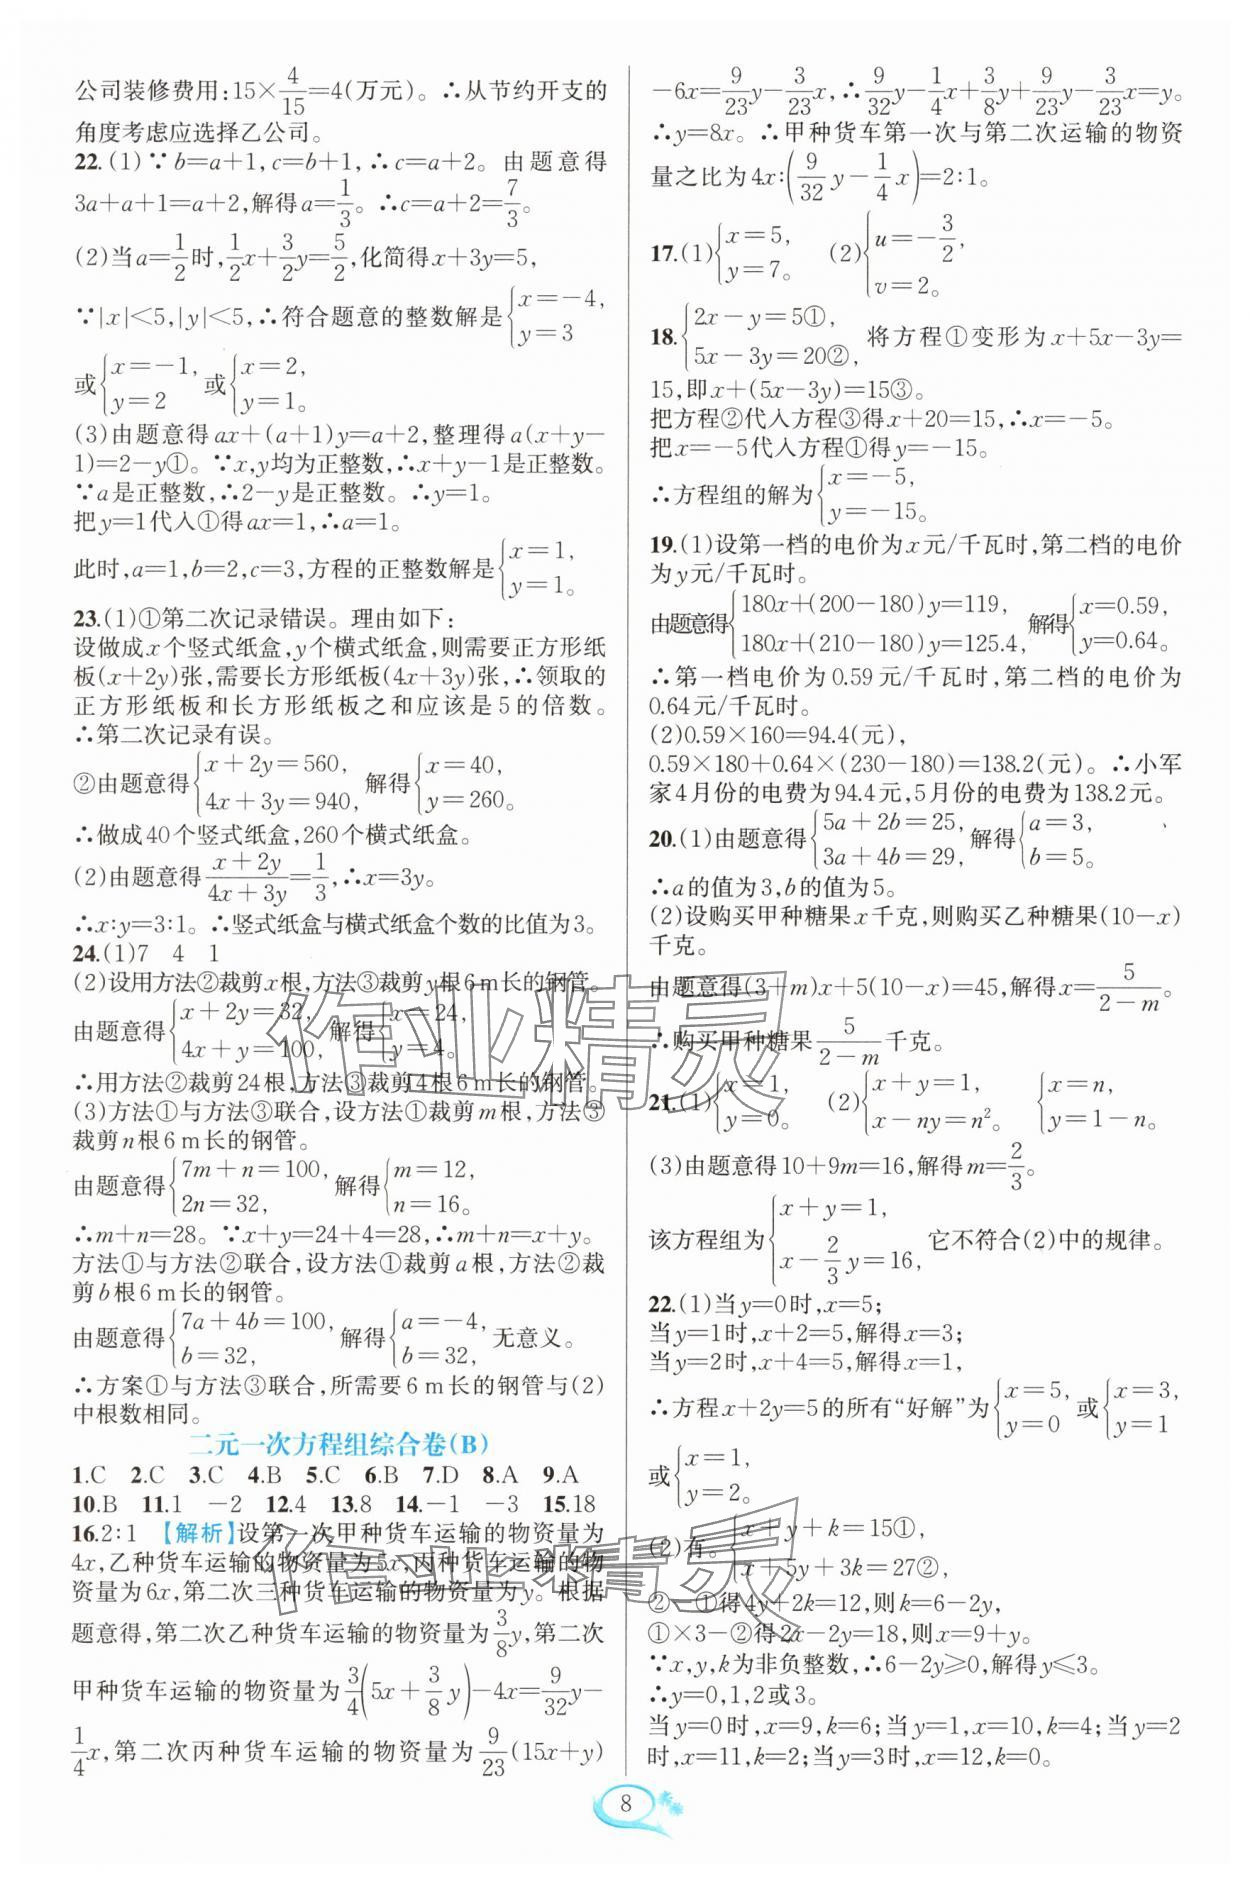 公司装修费用:15×4/15=4(万元)。∴从节约开支的
角度考虑应选择乙公司。
22.(1)∵b=a+1,c=b+1,∴c=a+2。由题意得
3a+a+1=a+2,解得a=1/3。∴c=a+2=7/3。
(2)当a=1/2时,1/2x+3/2y=5/2,化简得x+3y=5,
∵|x|<5,|y|<5,∴符合题意的整数解是{x=-4, y=3
或{x=-1, y=2 或{x=2, y=1。
(3)由题意得ax+(a+1)y=a+2,整理得a(x+y-
1)=2-y①。∵x,y均为正整数,∴x+y-1是正整数。
∵a是正整数,∴2-y是正整数。∴y=1。
把y=1代入①得ax=1,∴a=1。
此时,a=1,b=2,c=3,方程的正整数解是{x=1, y=1。
23.(1)①第二次记录错误。理由如下:
设做成x个竖式纸盒,y个横式纸盒,则需要正方形纸
板(x+2y)张,需要长方形纸板(4x+3y)张,∴领取的
正方形纸板和长方形纸板之和应该是5的倍数。
∴第二次记录有误。
②由题意得{x+2y=560, 4x+3y=940, 解得{x=40, y=260。
∴做成40个竖式纸盒,260个横式纸盒。
(2)由题意得(x+2y)/(4x+3y)=1/3,∴x=3y。
∴x:y=3:1。∴竖式纸盒与横式纸盒个数的比值为3。
24.(1)7 4 1
(2)设用方法②裁剪x根,方法③裁剪y根6m长的钢管。
由题意得{x+2y=32, 4x+y=100, 解得{x=24, y=4。
∴用方法②裁剪24根,方法③裁剪4根6m长的钢管。
(3)方法①与方法③联合,设方法①裁剪m根,方法③
裁剪n根6m长的钢管。
由题意得{7m+n=100, 2n=32, 解得{m=12, n=16。
∴m+n=28。∵x+y=24+4=28,∴m+n=x+y。
方法①与方法②联合,设方法①裁剪a根,方法②裁
剪b根6m长的钢管。
由题意得{7a+4b=100, b=32, 解得{a=-4, b=32, 无意义。
∴方案①与方法③联合,所需要6m长的钢管与(2)
中根数相同。
二元一次方程组综合卷(B)
1.C 2.C 3.C 4.B 5.C 6.B 7.D 8.A 9.A
10.B 11.1 -2 12.4 13.8 14.-1 -3 15.18
16.2:1 【解析】设第一次甲种货车运输的物资量为
4x,乙种货车运输的物资量为5x,丙种货车运输的物
资量为6x,第二次三种货车运输的物资量为y。根据
题意得,第二次乙种货车运输的物资量为3/8y,第二次
甲种货车运输的物资量为3/4(5x+3/8y)-4x=9/32y-
1/4x,第二次丙种货车运输的物资量为9/23(15x+y)
-6x=9/23y-3/23x,∴9/32y-1/4x+3/8y+9/23y-3/23x=y。
∴y=8x。∴甲种货车第一次与第二次运输的物资
量之比为4x:(9/32y-1/4x)=2:1。
17.(1){x=5, y=7。 (2){u=-3/2, v=2。
18.{2x-y=5①, 5x-3y=20②, 将方程①变形为x+5x-3y=
15,即x+(5x-3y)=15③。
把方程②代入方程③得x+20=15,∴x=-5。
把x=-5代入方程①得y=-15。
∴方程组的解为{x=-5, y=-15。
19.(1)设第一档的电价为x元/千瓦时,第二档的电价
为y元/千瓦时。
由题意得{180x+(200-180)y=119, 180x+(210-180)y=125.4, 解得{x=0.59, y=0.64。
∴第一档电价为0.59元/千瓦时,第二档的电价为
0.64元/千瓦时。
(2)0.59×160=94.4(元),
0.59×180+0.64×(230-180)=138.2(元)。∴小军
家4月份的电费为94.4元,5月份的电费为138.2元。
20.(1)由题意得{5a+2b=25, 3a+4b=29, 解得{a=3, b=5。
∴a的值为3,b的值为5。
(2)设购买甲种糖果x千克,则购买乙种糖果(10-x)
千克。
由题意得(3+m)x+5(10-x)=45,解得x=5/(2-m)。
∴购买甲种糖果5/(2-m)千克。
21.(1){x=1, y=0。 (2){x+y=1, x-ny=n²。 {x=n, y=1-n。
(3)由题意得10+9m=16,解得m=2/3。
该方程组为{x+y=1, x-2/3y=16, 它不符合(2)中的规律。
22.(1)当y=0时,x=5;
当y=1时,x+2=5,解得x=3;
当y=2时,x+4=5,解得x=1,
∴方程x+2y=5的所有“好解”为{x=5, y=0 或{x=3, y=1
或{x=1, y=2。
(2)有。{x+y+k=15①, x+5y+3k=27②,
②-①得4y+2k=12,则k=6-2y,
①×3-②得2x-2y=18,则x=9+y。
∵x,y,k为非负整数,∴6-2y≥0,解得y≤3。
∴y=0,1,2或3。
当y=0时,x=9,k=6;当y=1,x=10,k=4;当y=2
时,x=11,k=2;当y=3时,x=12,k=0。
8
作业精灵
作业精灵